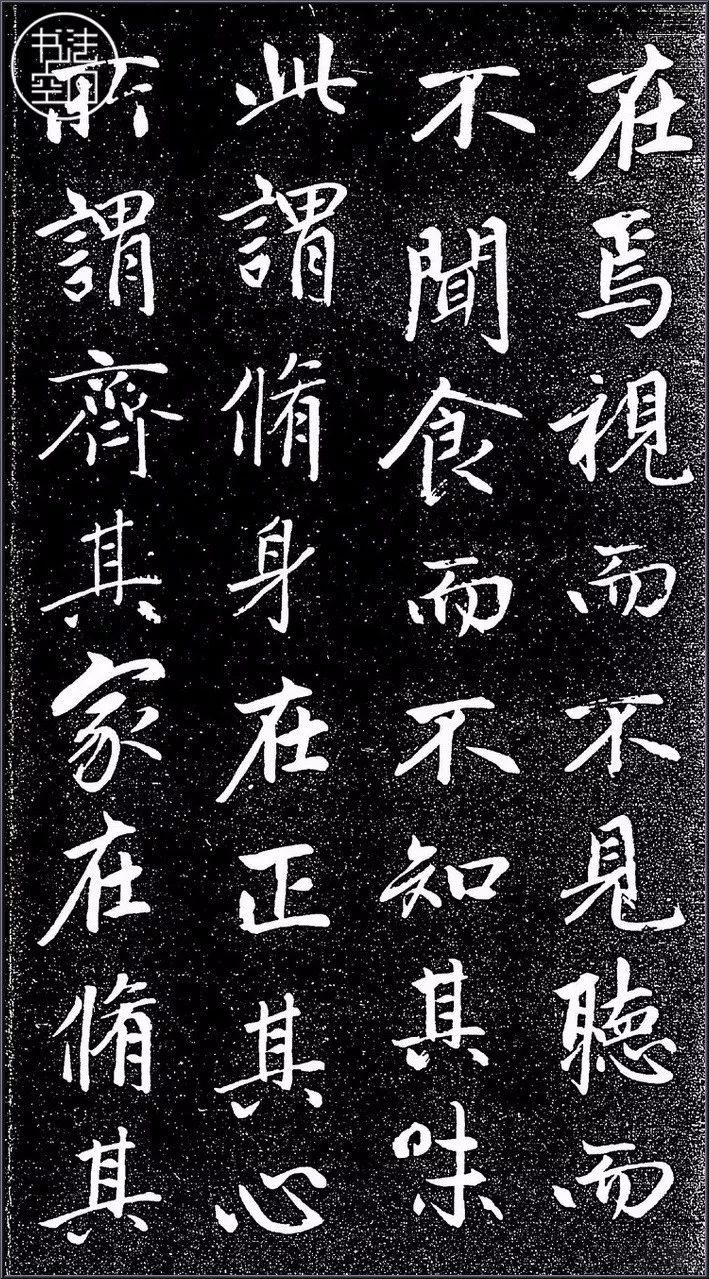 在焉視而不見聽而
不聞食而不知其味
此謂脩身在正其心
所謂齊其家在脩其
书法空间